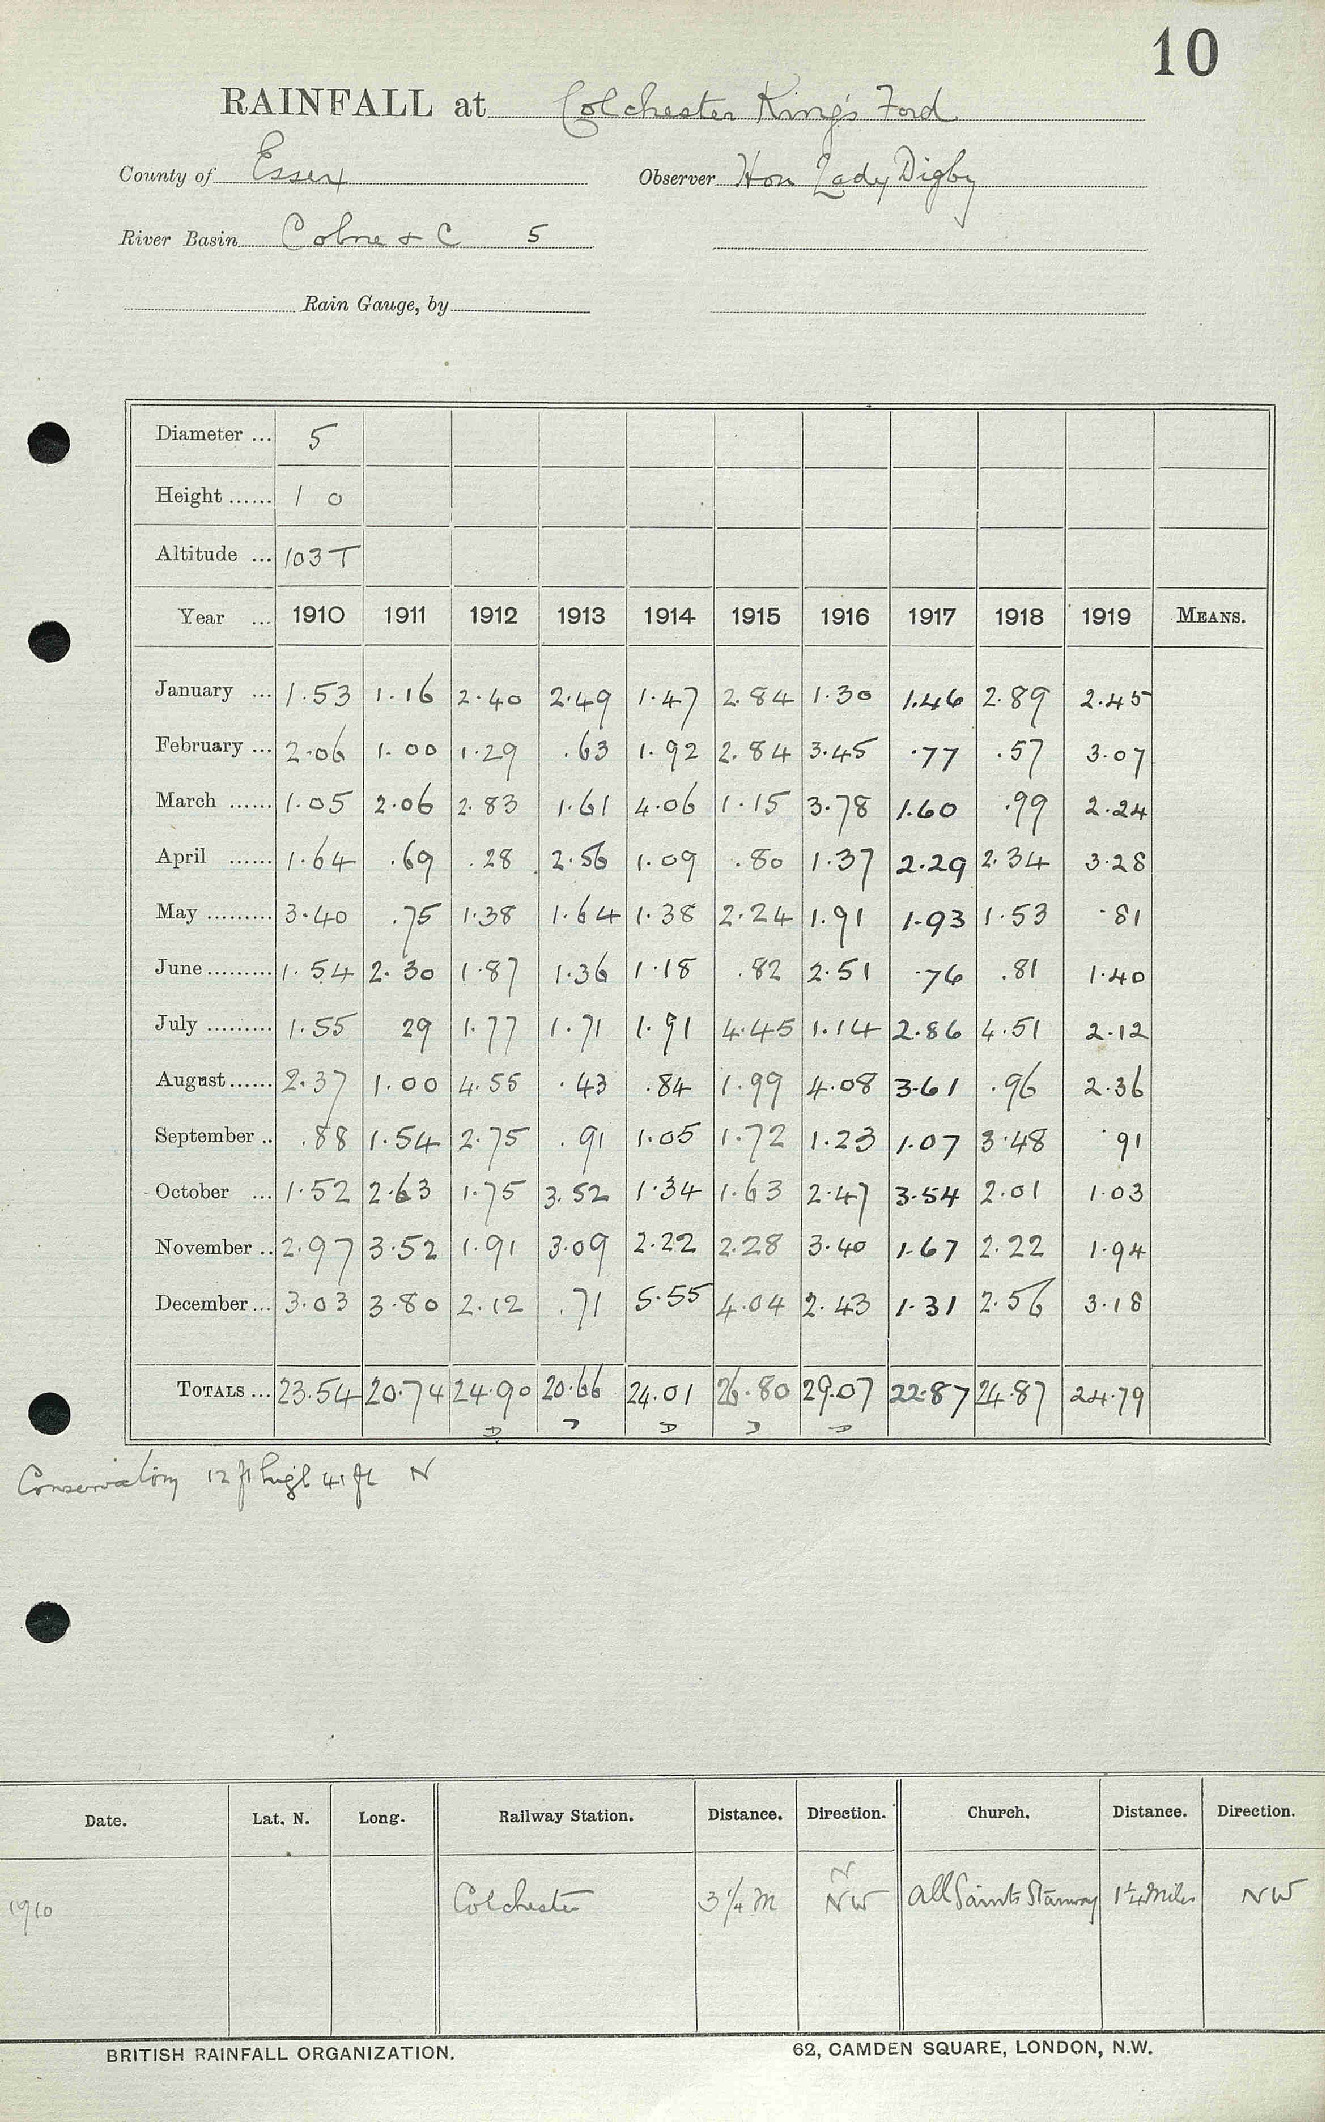 10
RAINFALL at Colchester King's Ford
County of Essex Observer Hon Lady Digby
River Basin Colne & C 5
Rain Gauge, by
Diameter ... 5
Height ...... 1 0
Altitude ... 103 T
Year ... 1910 1911 1912 1913 1914 1915 1916 1917 1918 1919 MEANS.
January ... 1.53 1.16 2.40 2.49 1.47 2.84 1.30 1.46 2.89 2.45
February ... 2.06 1.00 1.29 .63 1.92 2.84 3.45 .77 .57 3.07
March ...... 1.05 2.06 2.83 1.61 4.06 1.15 3.78 1.60 .99 2.24
April ...... 1.64 .69 .28 2.56 1.09 .80 1.37 2.29 2.34 3.28
May ......... 3.40 .75 1.38 1.64 1.38 2.24 1.91 1.93 1.53 .81
June ......... 1.54 2.30 1.87 1.36 1.18 .82 2.51 .76 .81 1.40
July ......... 1.55 29 1.77 1.71 1.91 4.45 1.14 2.86 4.51 2.12
August ...... 2.37 1.00 4.55 .43 .84 1.99 4.08 3.61 .96 2.36
September .. .88 1.54 2.75 .91 1.05 1.72 1.23 1.07 3.48 .91
October ... 1.52 2.63 1.75 3.52 1.34 1.63 2.47 3.54 2.01 1.03
November .. 2.97 3.52 1.91 3.09 2.22 2.28 3.40 1.67 2.22 1.94
December ... 3.03 3.80 2.12 .71 5.55 4.04 2.43 1.31 2.56 3.18
TOTALS ... 23.54 20.74 24.90 20.66 24.01 26.80 29.07 22.87 24.87 24.79
Conservatory 12 ft high 41 ft N
Date. Lat. N. Long. Railway Station. Distance. Direction. Church. Distance. Direction.
N
1910 Colchester 3 1/4 M NW All Saints Stanway 1 1/4 miles NW
BRITISH RAINFALL ORGANIZATION. 62, CAMDEN SQUARE, LONDON, N.W.